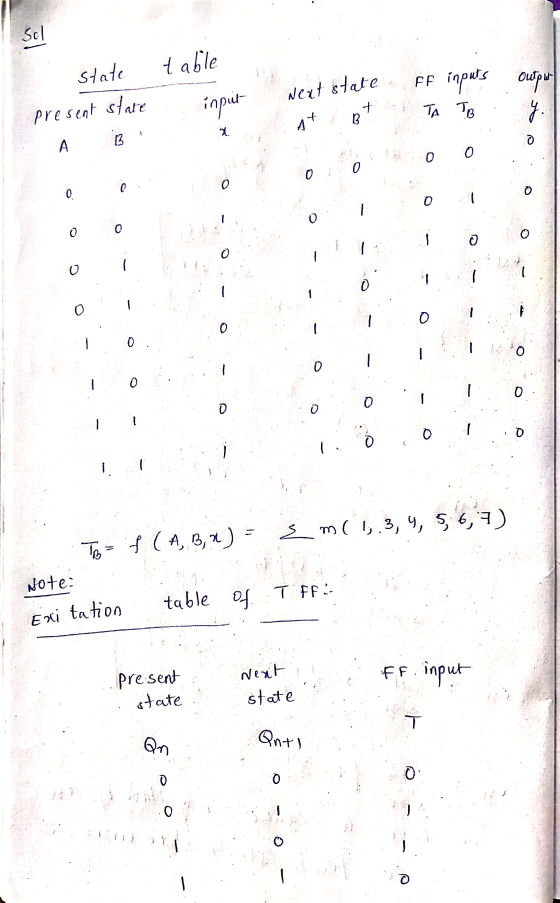 Sol
State table
present state input Next state FF inputs output
A B x A+ B+ TA TB y.
0 0 0 0 0 0 0 0
0 0 1 0 1 0 1 0
0 1 0 1 1 1 0 0
0 1 1 1 0 1 1 1
1 0 0 1 1 0 1 1
1 0 1 0 1 1 1 0
1 1 0 0 0 1 1 0
1 1 1 1 0 0 1 0
TB = f (A, B, x) = Σ m( 1, 3, 4, 5, 6, 7)
Note:
Exitation table of T FF:-
present Next FF. input
state state
T
Qn Qn+1
0 0 0
0 1 1
1 0 1
1 1 0